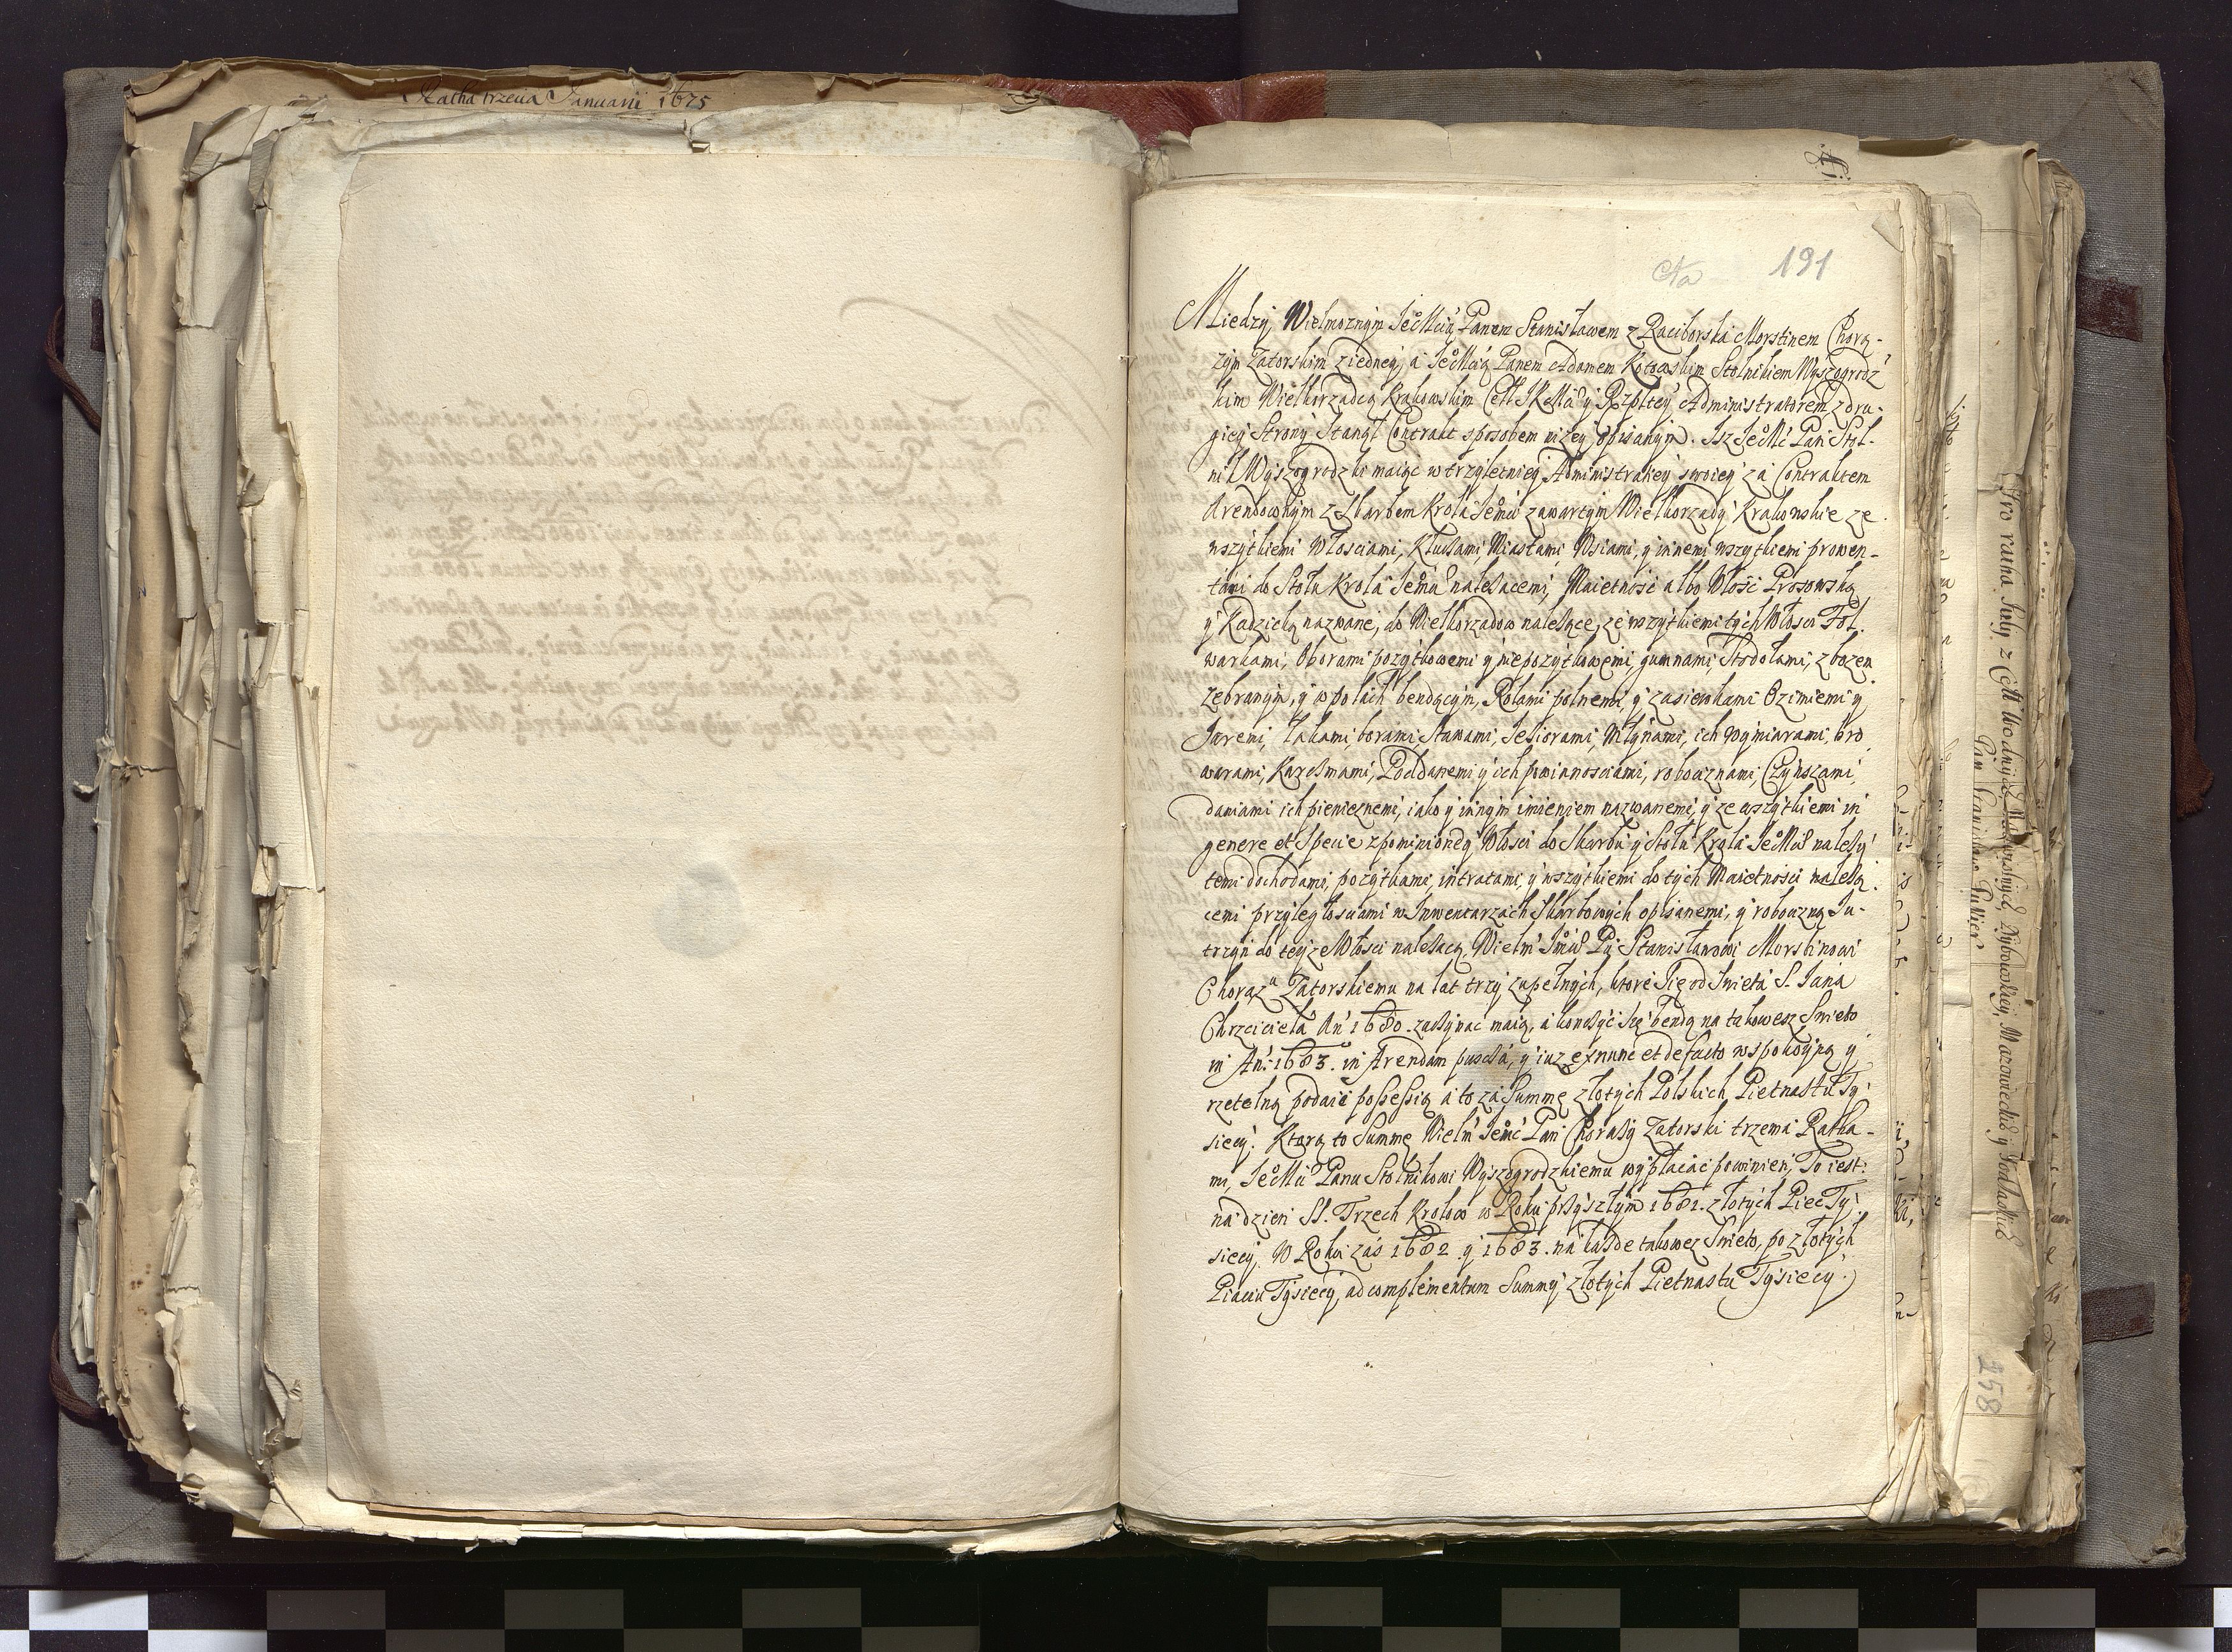 Ratha trzecia Januarii 1675
191
Miedzÿ Wielmoznÿm JeoMcią Panem Stanisławem z Raciborska Morstinem Chorą-
zÿm Zatorskim ziedneÿ, a JeoMcią Panem Adamem Kotowskim Stolnikiem Wÿszogrodz
kim Wielkorządcą Krakowskim Ceł JKoMci ÿ Rzplteÿ Administratorem z dru-
gieÿ Stronÿ Stanął Contrakt sposobem nizeÿ opisanÿm. Isz JeoMć Pan Stol-
nik Wÿszogrodzki maiąc w trzÿletnieÿ Administratieÿ swoieÿ za Contraktem
Arendownÿm z Skarbem Krola Jeomci zawartÿm Wielkorządÿ Krakowskie ze
wszÿtkiemi Włosciami, Kluczami, Miastami, Wsiami, ÿ innemi wszÿtkiemi prowen-
tami do Stołu Krola Jeomci nalezącemi, Maietnosć albo Włość Prosowską
ÿ Kadzielą nazwane, do Wielkorządow nalezące, ze wszÿtkiemi tÿch Włosci Fol-
warkami, Oborami pozÿtkowemi ÿ niepozÿtkowemi, gumnami, Stodołami, z bozem
zebranÿm, ÿ w polach bendącÿm, Rolami polnemi, ÿ zasiewkami Ozimiemi ÿ
Jaremi, Łąkami, borami, Stawami, Jeziorami, Młÿnami, ich wÿmiarami, bro
warami, Karczmami, Poddanemi ÿ ich powinnosciami, robociznami, Czÿnszami,
daniami ich pienieznemi, iako ÿ innÿm imieniem nazwanemi, ÿ ze wszÿtkiemi in
genere et Specie zpomnioneÿ Włosci do Skarbu ÿ Stołu Krola JeoMci nalezÿ
temi dochodami, pozÿtkami, intratami, ÿ wszÿtkiemi do tÿch Maietnosci nalezą
cemi przÿległosciami w Inwentarzach Skarbowÿch opisanemi, ÿ robocizną Ju-
trzÿn do teÿze Włosci nalezącą, Wielm Jmci Pu Stanisławowi Morstinowi
Chorązu Zatorskiemu na lat trzÿ zupełnÿch, ktore Się od Swieta S. Jana
Chrzciciela An 1680. zaczÿnać maią, a konczÿć Się bendą na takowesz Swieto
in An: 1683. in Arendam puscza, ÿ iuz ex nunc et de facto w spokoÿną ÿ
rzetelną podaie possessią a to za Summę złotÿch Polskich Pietnastu Tÿ
siecÿ. Ktorą to Summę Wielm Jeomć Pan Chorązÿ Zatorski trzema Ratha-
mi, JeoMci Panu Stolnikowi Wÿszogrodzkiemu wÿpłacać powinien, To iest:
na dzien SS. Trzech Krolow w Roku przÿszłÿm 1681. złotÿch Piec Tÿ-
siecÿ, W Roku zas 1682. ÿ 1683. na kazde takowez Swieto, po złotÿch
Piaciu Tÿsiecÿ, ad complementum Summÿ złotÿch Pietnastu Tÿsiecÿ.
258